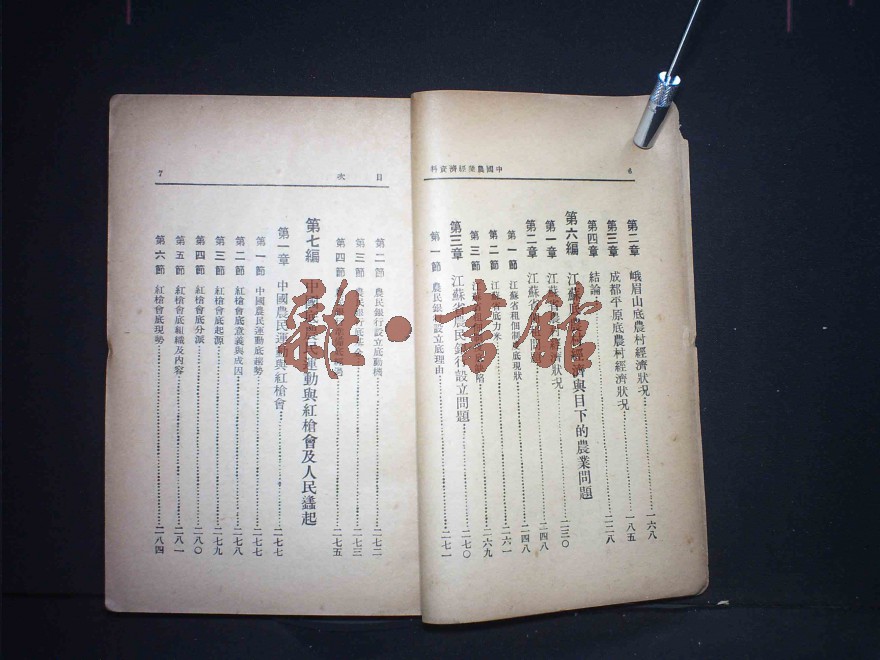 6
中國農業經濟資料
第二章 峨眉山底農村經濟狀况 一六八
第三章 成都平原底農村經濟狀况 一八五
第四章 結論 二二八
第六編 江蘇 農村經濟與目下的農業問題
第一章 江蘇省農 狀况 二三〇
第二章 江蘇省 二四八
第一節 江蘇省租佃 底現狀 二四八
第二節 江蘇省底力米 二六一
第三節 江蘇省 二六九
第三章 江蘇省農民銀行設立問題 二七〇
第一節 農民銀行設立底理由 二七一
目次
7
第二節 農民銀行設立底動機 二七二
第三節 農民銀行底 二七三
第四節 二七五
第七編 中國農民運動與紅槍會及人民蠭起
第一章 中國農民運動與紅槍會 二七七
第一節 中國農民運動底趨勢 二七七
第二節 紅槍會底意義與成因 二七八
第三節 紅槍會底起源 二七九
第四節 紅槍會底分派 二八〇
第五節 紅槍會底組織及內容 二八一
第六節 紅槍會底現勢 二八四
雜·書館